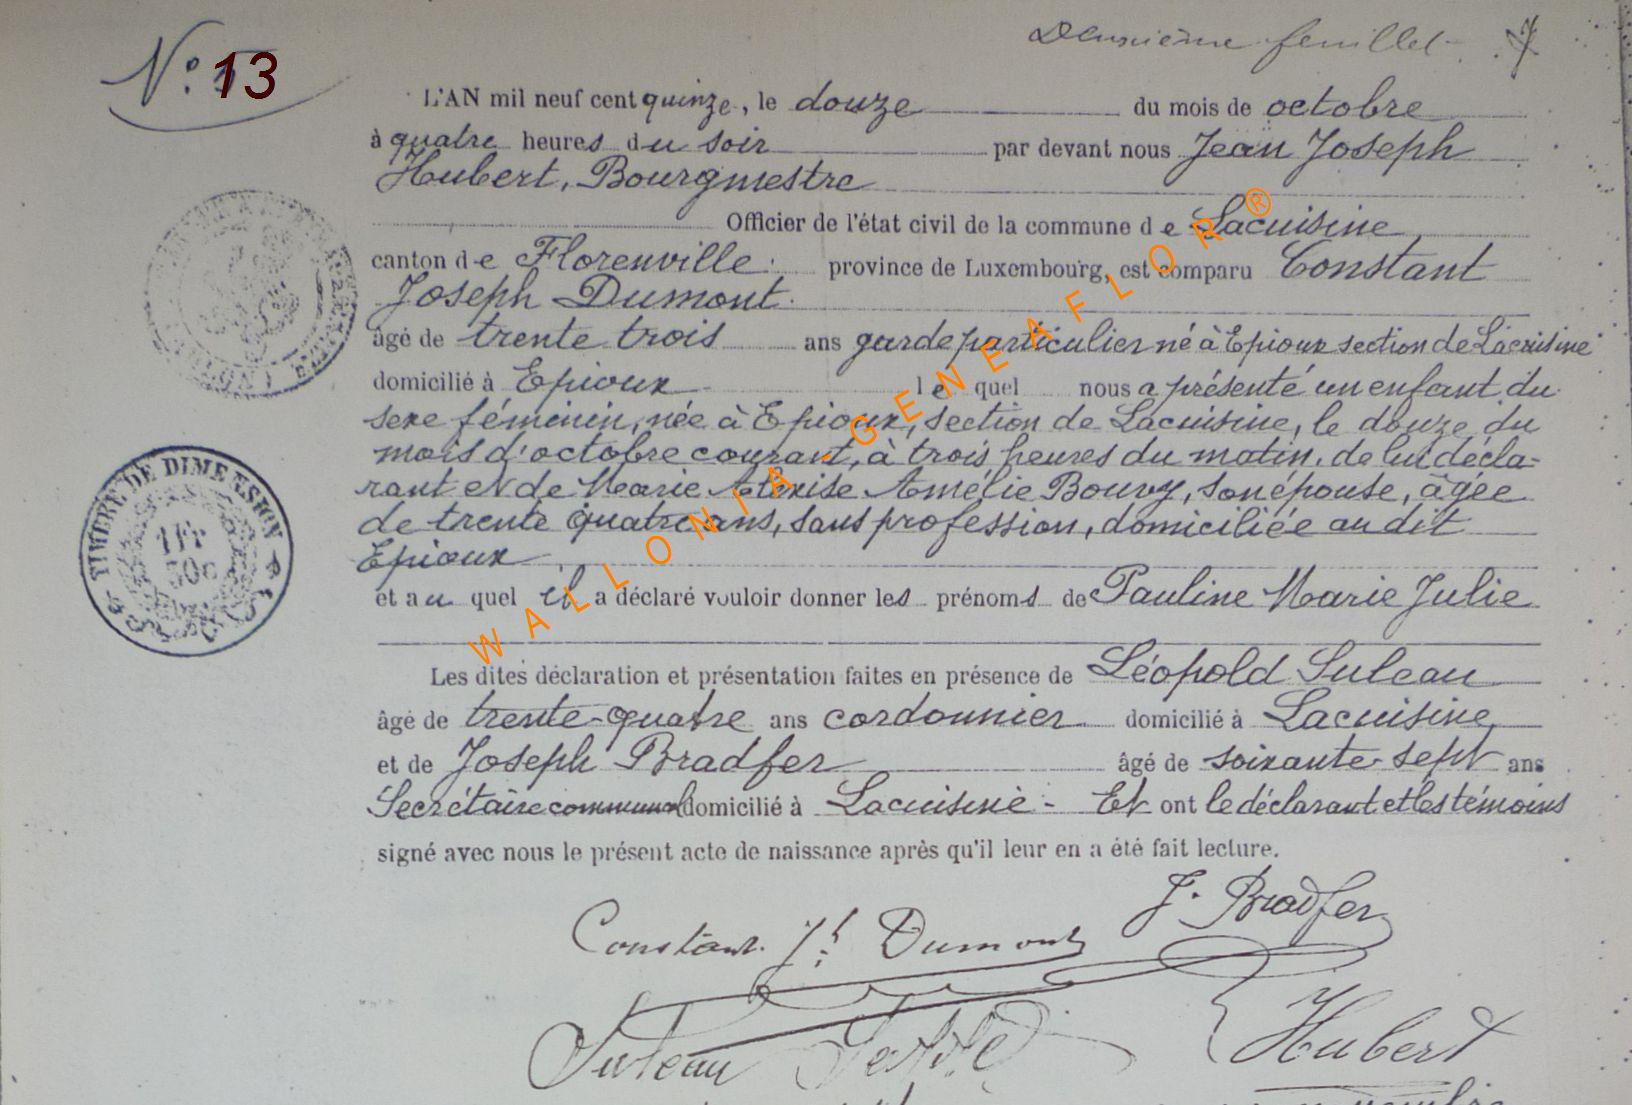 Deuxième feuillet
N° 13
L'AN mil neuf cent quinze, le douze du mois de octobre
à quatre heures du soir par devant nous Jean Joseph
Hubert, Bourgmestre
Officier de l'état civil de la commune de Lacuisine
canton de Florenville province de Luxembourg, est comparu Constant
Joseph Dumont
âgé de trente trois ans garde particulier né à Epioux section de Lacuisine
domicilié à Epioux lequel nous a présenté un enfant du
sexe féminin, née à Epioux, section de Lacuisine, le douze du
mois d'octobre courant, à trois heures du matin, de lui décla-
rant et de Marie Amélie Bouvy, son épouse, âgée
de trente quatre ans, sans profession, domiciliée au dit
Epioux
et au quel il a déclaré vouloir donner les prénoms de Pauline Marie Julie
Les dites déclaration et présentation faites en présence de Léopold Suleau
âgé de trente-quatre ans cordonnier domicilié à Lacuisine
et de Joseph Bradfer âgé de soixante-sept ans
Secrétaire communal domicilié à Lacuisine - Et ont le déclarant et les témoins
signé avec nous le présent acte de naissance après qu'il leur en a été fait lecture.
J. Bradfer
Constant Jh Dumont
Suleau
Hubert
TIMBRE DE DIMENSION
1 Fr
50c
WALLONIA GENEAFLOR ®